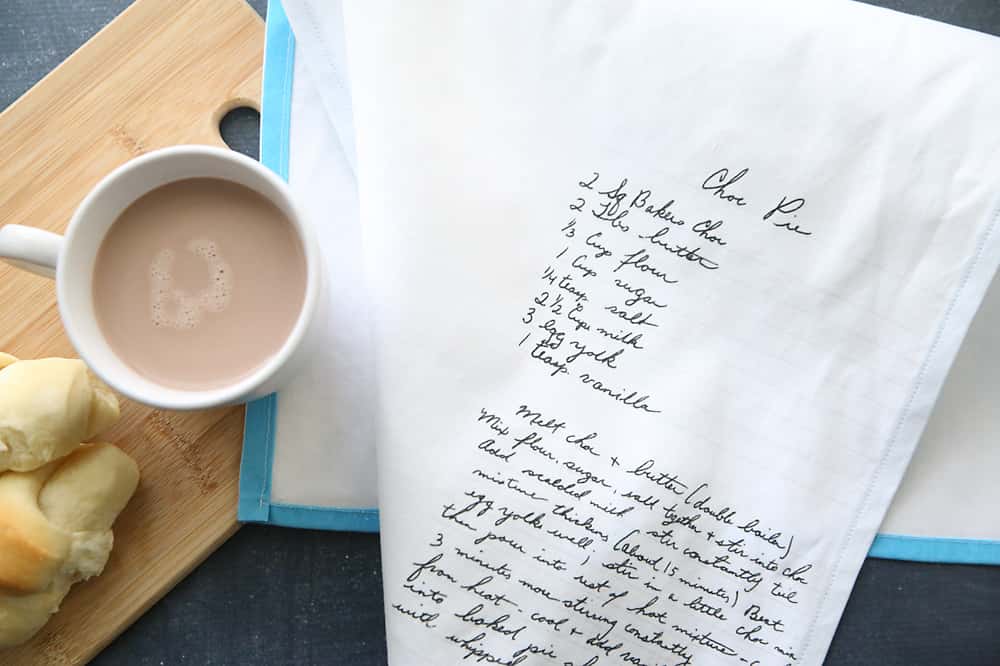 Choc Pie
2 Sq Bakers Choc
2 Tbs butter
1/3 Cup flour
1 Cup sugar
1/4 teasp salt
2 1/2 Cup milk
3 egg yolk
1 teasp. vanilla
Melt choc + butter (double boiler)
Mix flour, sugar, salt together + stir into choc
Add scalded milk, stir constantly till
mixture thickens (about 15 minutes) Beat
egg yolks well; stir in a little choc mix
then pour into rest of hot mixture -
3 minutes more stirring constantly
from heat - cool + add
into baked pie
with whipped